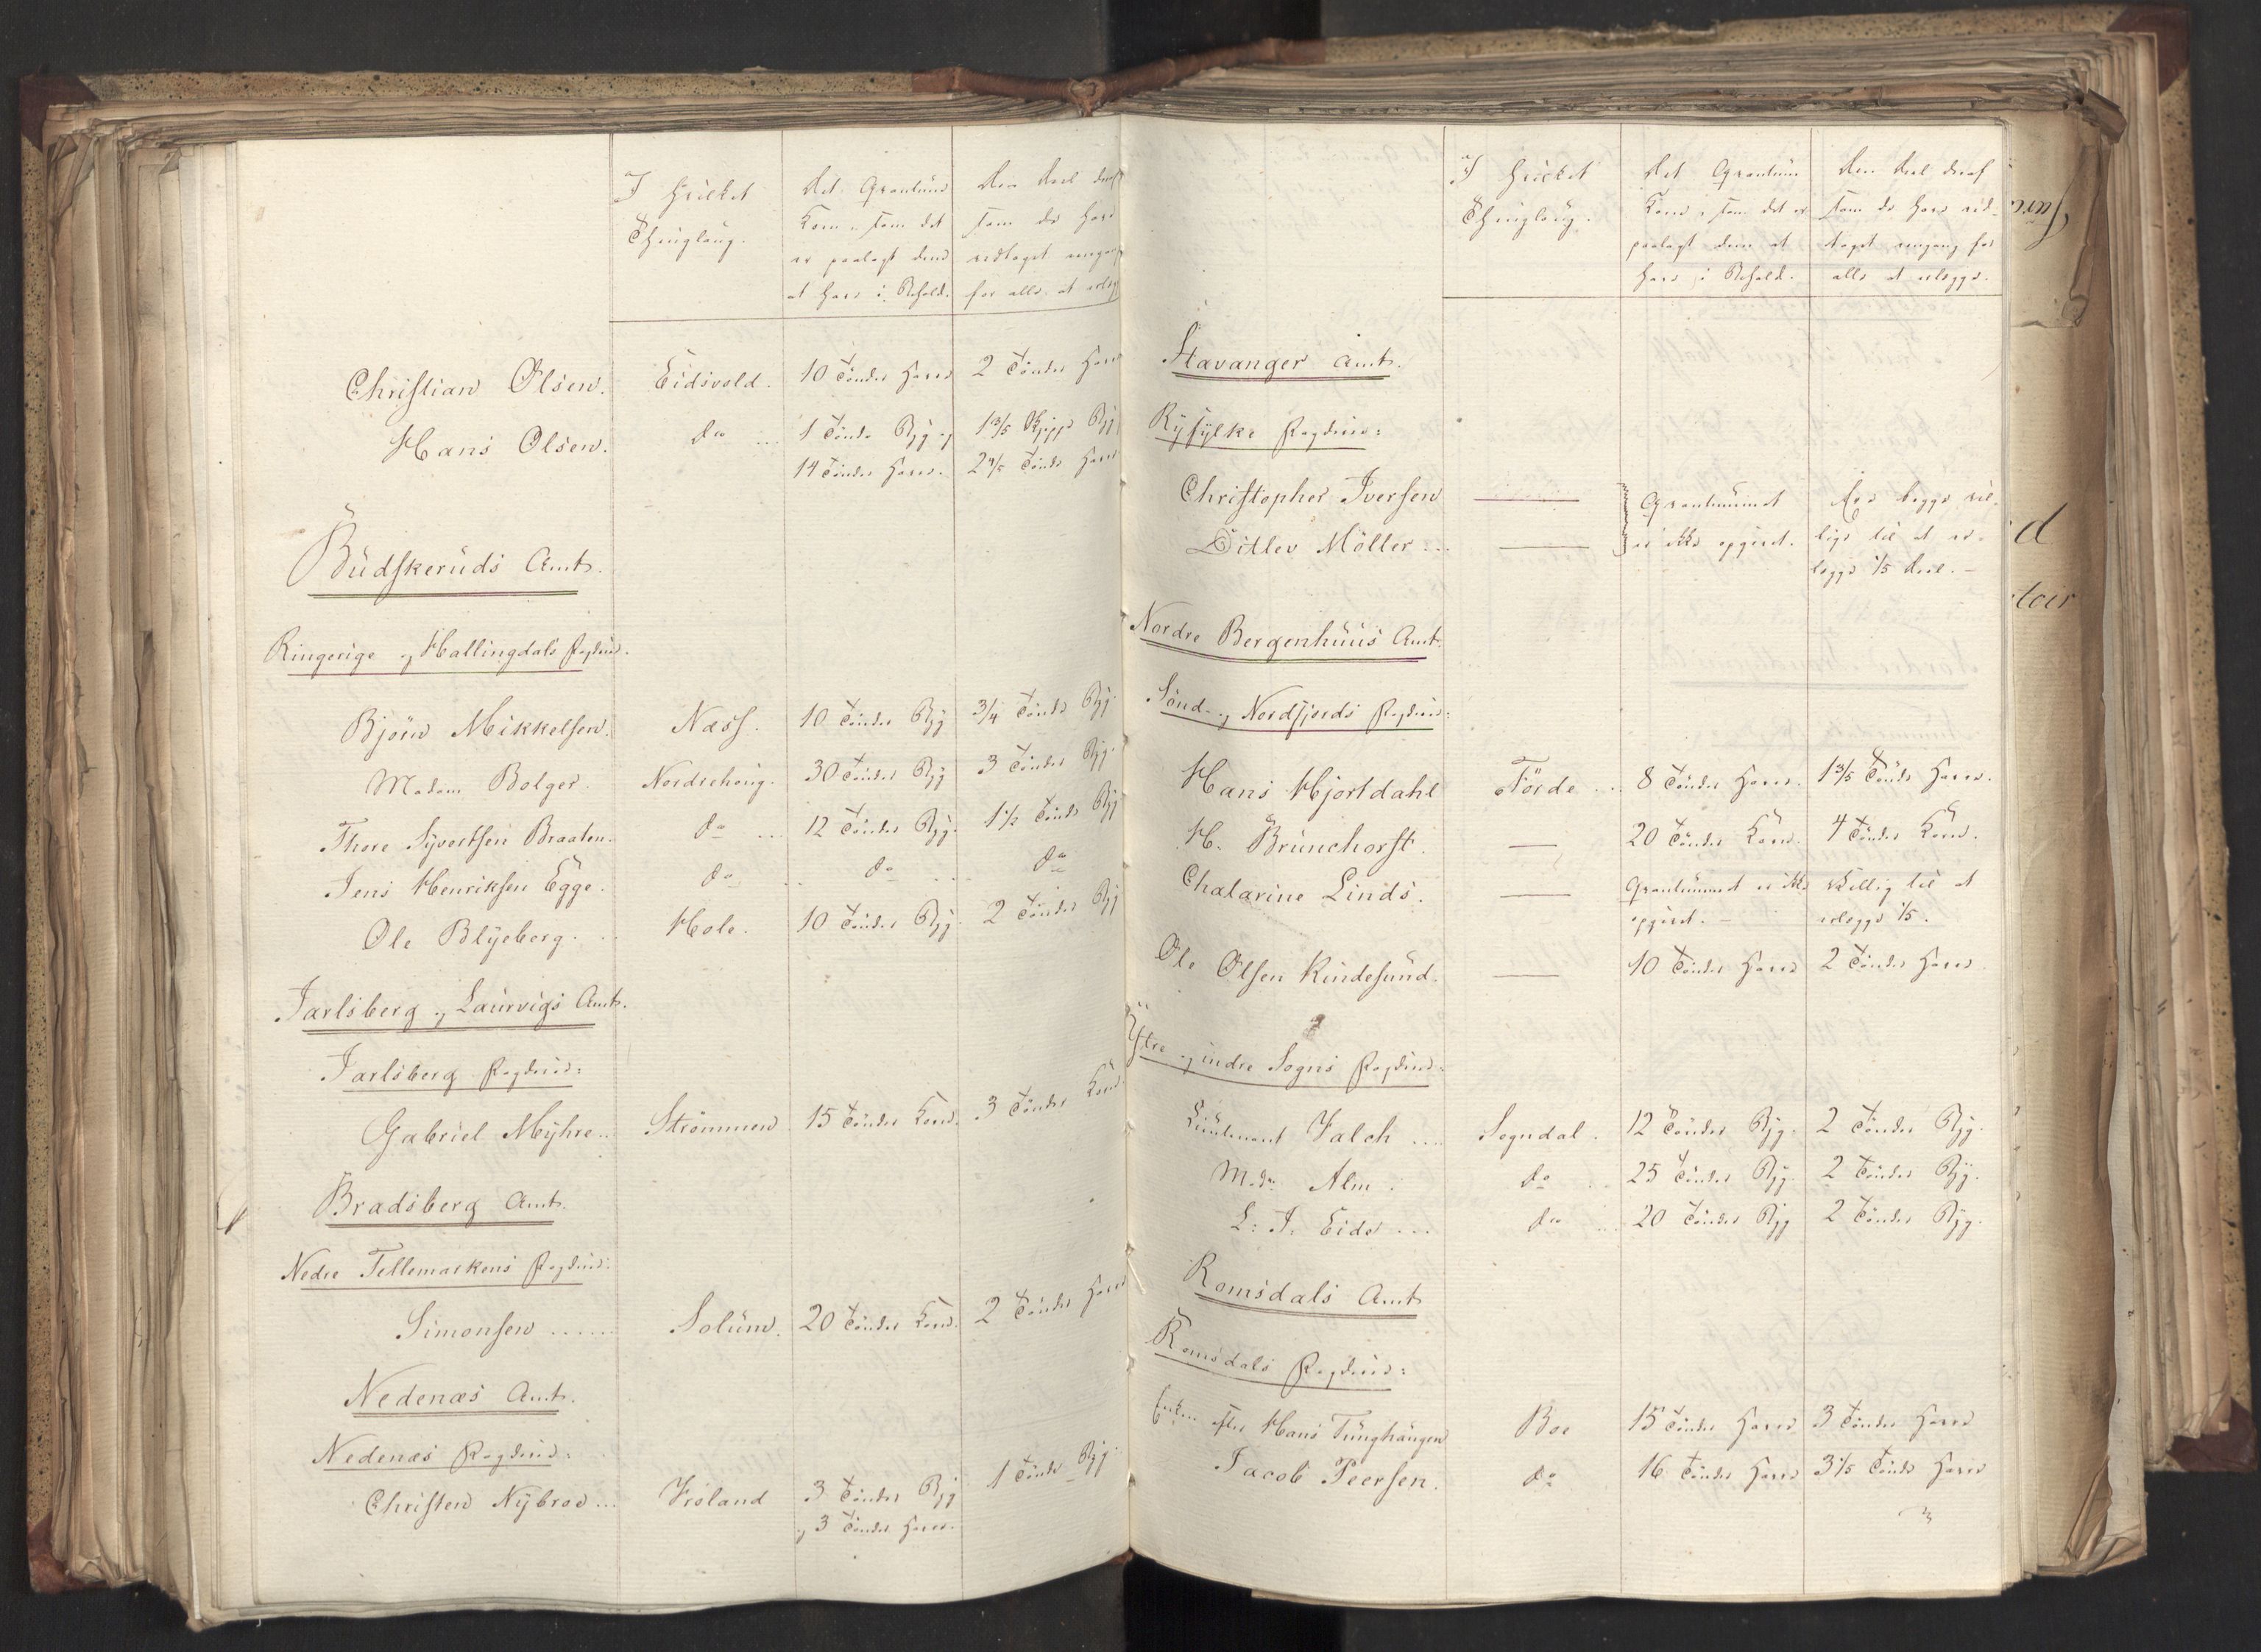 I hvilket
Thinglaug.
det Qvantum
Korn, som det
er paalagt dem
at have i Behold.
den deel deraf
som de have
vedtaget engang
for alle at erlægge
Christian Olsen. Eidsvold. 10 Tönder Havre 2 Tönder Havre
Hans Olsen. do 1 Tönde Rug og 1 3/5 Skjeppe Rug
14 Tönder Havre. 2 4/5 Tönde Havre
Budskeruds Amt.
Ringerige og Hallingdals Fogderie.
Bjørn Mikkelsen. Næss. 10 Tönder Rÿg 3/4 Tönde Rÿg
Madam Bolger. Nordrehoug. 30 Tönder Rÿg 3 Tönder Rÿg
Thore Syvertsen Braaten. do 12 Tönder Rÿg. 1 1/2 Tönde Rÿg
Jens Henriksen Egge. do do do
Ole Blÿeberg. Hole. 10 Tönder Rÿg. 2 Tönder Rÿg
Jarlsberg og Laurvigs Amt.
Jarlsberg Fogderie:
Gabriel Mÿhre Strömmen 15 Tönder Korn. 3 Tönder Korn
Bradsberg Amt.
Nedre Tellemarkens Fogderie:
Simonsen ...... Solum. 20 Tönder Korn. 2 Tönder Havre
Nedenæs Amt.
Nedenæs Fogderie:
Christen Nÿbroe ... Froland 3 Tönder Rÿg 1 Tönde Rÿg
og 3 Tönder Havre.
I hvilket
Thinglaug.
det Qvantum
Korn, som det er
paalagt dem at
have i Behold.
den deel deraf
som de have ved-
taget engang for
alle at erlægge.
Stavanger Amt.
Rÿfÿlke Fogderie:
Christopher Iversen — Qvantummet Ere begge vil-
Ditlev Möller ... — er ikke opgivet. lige til at er-
lægge 1/5 deel. –
Nordre Bergenhuus Amt
Sönd- og Nordfjords Fogderie:
Hans Hjortdahl Förde ... 8 Tönder Havre. 1 3/5 Tönde Havre.
H. Brunchorst. — 20 Tönder Korn. 4 Tönder Korn.
Chatarine Linds. — Qvantummet er ikke Villig til at
opgivet. – erlægge 1/5.
Ole Olsen Rindesund. — 10 Tönder Havre 2 Tönder Havre
Ÿtre og indre Sogns Fogderie:
Lieutenant Falch .... Sogndal. 12 Tönder Rÿg. 2 Tönder Rÿg.
Mdm Alm. do 25 Tönder Rÿg. 2 Tönder Rÿg.
L: J. Eide ... do 20 Tönder Rÿg 2 Tönder Rÿg.
Romsdals Amt
Romsdals Fogderie:
Enken efter Hans Tunghaugen Boe 15 Tönder Havre 3 Tönder Havre
Jacob Peersen. do 16 Tönder Havre 3 1/5 Tönde Havre